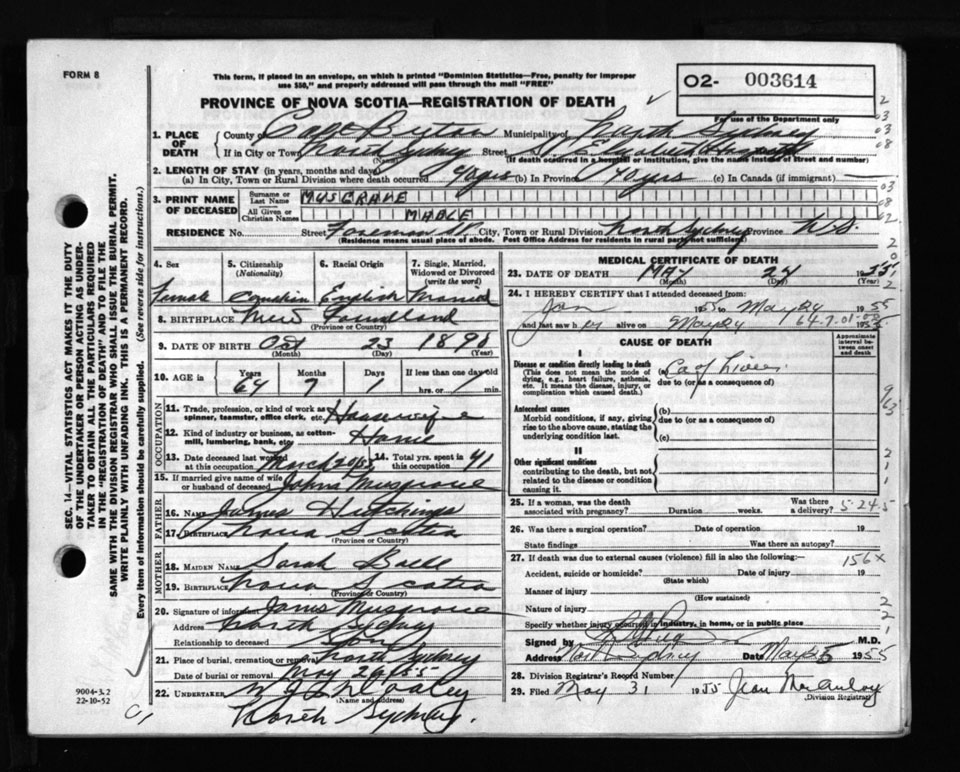 FORM 8
This form, if placed in an envelope, on which is printed "Dominion Statistics—Free, penalty for improper
use $50," and properly addressed will pass through the mail "FREE"
O2- 003614
PROVINCE OF NOVA SCOTIA—REGISTRATION OF DEATH
For use of the Department only
1. PLACE OF DEATH County of Cape Breton Municipality of North Sydney
If in City or Town North Sydney (Name) Street St Elizabeth Hospital
(If death occurred in a hospital or institution, give the name instead of street and number)
2. LENGTH OF STAY (in years, months and days)
(a) In City, Town or Rural Division where death occurred (b) In Province 40 yrs (c) In Canada (if immigrant)
3. PRINT NAME OF DECEASED Surname or Last Name MUSGRAVE
All Given or Christian Names MABLE
RESIDENCE No. Street Foreman St City, Town or Rural Division North Sydney Province N.S.
(Residence means usual place of abode. Post Office Address for residents in rural parts not sufficient)
4. Sex 5. Citizenship (Nationality) 6. Racial Origin 7. Single, Married, Widowed or Divorced (write the word)
Female Canadian English Married
8. BIRTHPLACE New Foundland
(Province or Country)
9. DATE OF BIRTH Oct 23 1890
(Month) (Day) (Year)
10. AGE in Years Months Days If less than one day old
64 7 1 hrs. or min.
OCCUPATION
11. Trade, profession, or kind of work as spinner, teamster, office clerk, etc. Housewife
12. Kind of industry or business, as cotton-mill, lumbering, bank, etc. Home
13. Date deceased last worked at this occupation March 14. Total yrs. spent in this occupation 41
15. If married give name of wife or husband of deceased John Musgrave
FATHER
16. NAME James Hutchings
17. BIRTHPLACE Nova Scotia
(Province or Country)
MOTHER
18. MAIDEN NAME Sarah
19. BIRTHPLACE Nova Scotia
(Province or Country)
20. Signature of informant James Musgrave
Address North Sydney
Relationship to deceased Son
21. Place of burial, cremation or removal North Sydney
Date of burial or removal May 29 1955
22. UNDERTAKER
(Name and address)
North Sydney.
9004-3.2
22-10-52
MEDICAL CERTIFICATE OF DEATH
23. DATE OF DEATH MAY 24 1955
(Month) (Day) (Year)
24. I HEREBY CERTIFY that I attended deceased from:
Jan 1955 to May 24 1955
and last saw her alive on May 24 1955
64.7.01-00
CAUSE OF DEATH
Approximate interval between onset and death
I
Disease or condition directly leading to death (a) Ca of Liver
(This does not mean the mode of dying, e.g., heart failure, asthenia, etc. It means the disease, injury, or complication which caused death.)
due to (or as a consequence of)
Antecedent causes
Morbid conditions, if any, giving rise to the above cause, stating the underlying condition last.
(b)
due to (or as a consequence of)
(c)
II
Other significant conditions
contributing to the death, but not related to the disease or condition causing it.
25. If a woman, was the death associated with pregnancy? Duration weeks. Was there a delivery? 5-24.5
26. Was there a surgical operation? Date of operation 19
State findings Was there an autopsy?
27. If death was due to external causes (violence) fill in also the following:— 156X
Accident, suicide or homicide? (State which) Date of injury 19
Manner of injury
(How sustained)
Nature of injury
Specify whether injury occurred in industry, in home, or in public place
Signed by M.D.
Address North Sydney Date May 25 1955
28. Division Registrar's Record Number
29. Filed May 31 1955 Jean MacAulay
(Division Registrar)
SEC. 14—VITAL STATISTICS ACT MAKES IT THE DUTY
OF THE UNDERTAKER OR PERSON ACTING AS UNDER-
TAKER TO OBTAIN ALL THE PARTICULARS REQUIRED
IN THE "REGISTRATION OF DEATH" AND TO FILE THE
SAME WITH THE DIVISION REGISTRAR WHO SHALL ISSUE THE BURIAL PERMIT.
WRITE PLAINLY WITH UNFADING INK. THIS IS A PERMANENT RECORD.
Every item of information should be carefully supplied. (See reverse side for instructions.)